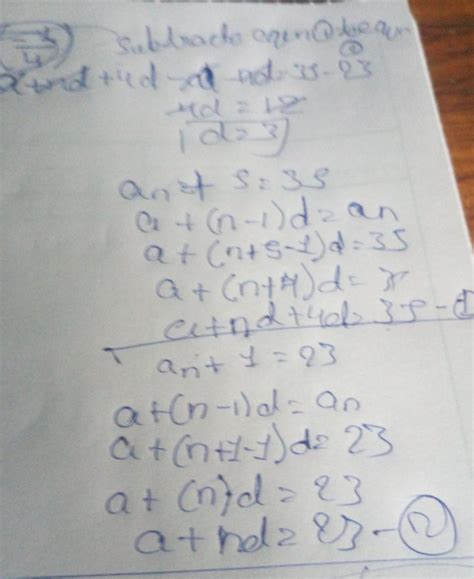 subtract eqn ① by eqn
②
a+nd+4d-a-nd=35-23
4d=12
d=3
an+5=35
a+(n-1)d=an
a+(n+5-1)d=35
a+(n+4)d=35
a+nd+4d=35-①
an+1=23
a+(n-1)d=an
a+(n+1-1)d=23
a+(n)d=23
a+nd=23-②